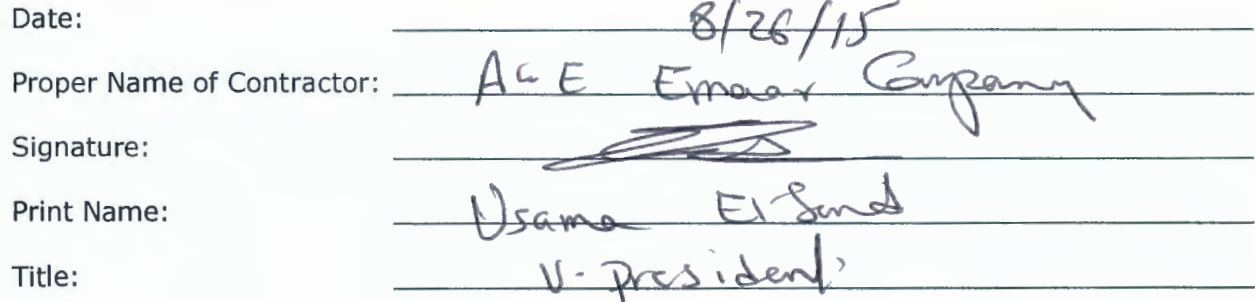 Date: 8/26/15
Proper Name of Contractor: A & E Emaar Company
Signature:
Print Name: Usama El
Title: V. President